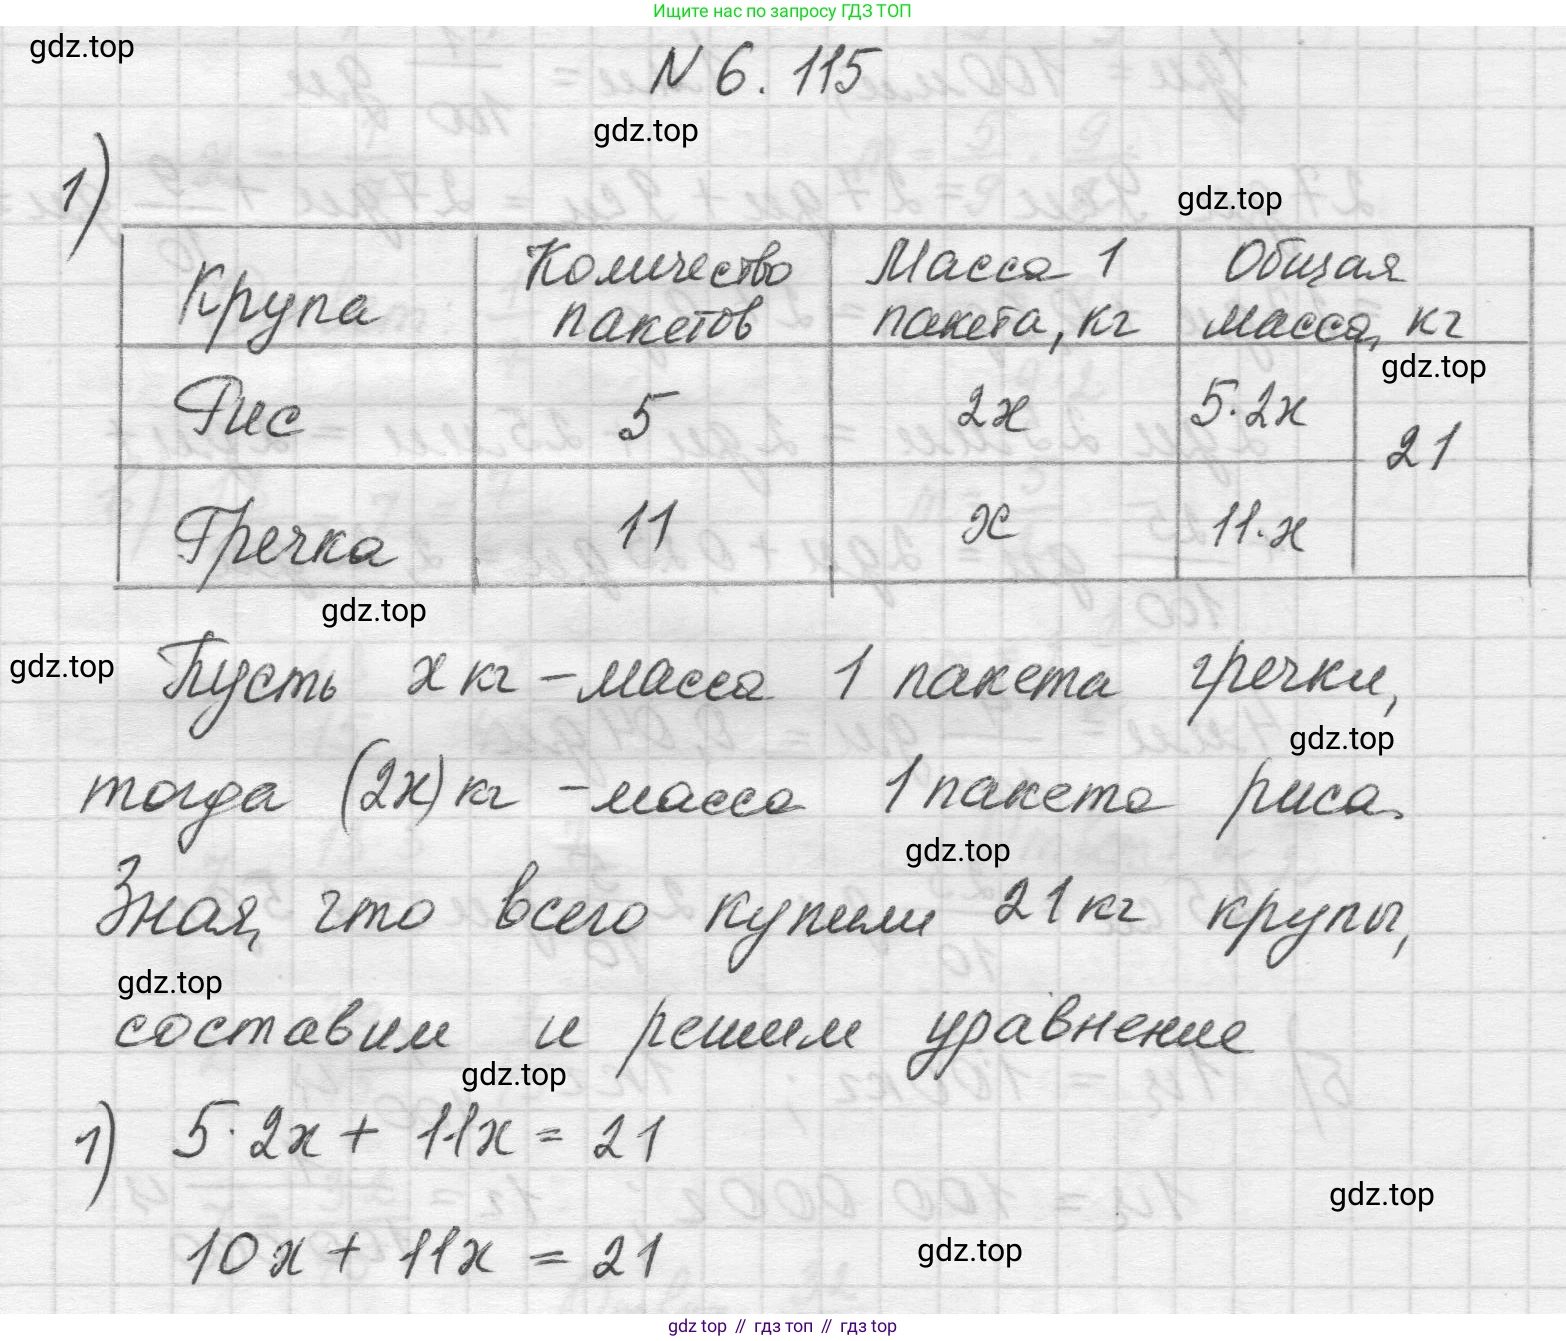 Ищите нас по запросу ГДЗ ТОП
gdz.top
N 6. 115
gdz.top
1)
gdz.top
Крупа
Количество пакетов
Масса 1 пакета, кг
Общая масса, кг
gdz.top
Рис 5 2x 5·2x
21
Гречка 11 x 11·x
gdz.top
gdz.top
Пусть x кг – масса 1 пакета гречки,
gdz.top
тогда (2x) кг – масса 1 пакета риса.
gdz.top
Зная, что всего купили 21 кг крупы,
gdz.top
составим и решим уравнение
gdz.top
1) 5·2x + 11x = 21
gdz.top
10x + 11x = 21
gdz.top
gdz top // гдз топ // гдз top